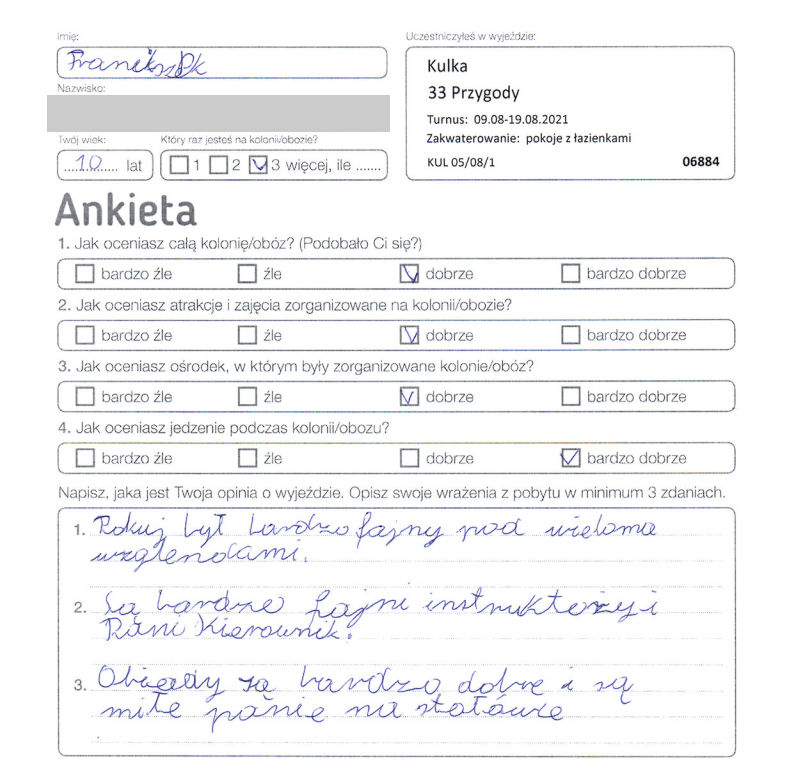 Imię:
Uczestniczyłeś w wyjeździe:
Franciszek
Kulka
33 Przygody
Nazwisko:
Turnus: 09.08-19.08.2021
Zakwaterowanie: pokoje z łazienkami
KUL 05/08/1
06884
Twój wiek:
Który raz jesteś na kolonii/obozie?
10 lat
1 2 3 więcej, ile .......
Ankieta
1. Jak oceniasz całą kolonię/obóz? (Podobało Ci się?)
bardzo źle źle dobrze bardzo dobrze
2. Jak oceniasz atrakcje i zajęcia zorganizowane na kolonii/obozie?
bardzo źle źle dobrze bardzo dobrze
3. Jak oceniasz ośrodek, w którym były zorganizowane kolonie/obóz?
bardzo źle źle dobrze bardzo dobrze
4. Jak oceniasz jedzenie podczas kolonii/obozu?
bardzo źle źle dobrze bardzo dobrze
Napisz, jaka jest Twoja opinia o wyjeździe. Opisz swoje wrażenia z pobytu w minimum 3 zdaniach.
1. Pokuj był bardzo fajny pod wieloma
wzglendami.
2. Są bardzo fajni instruktorzy i
Pani Kierownik.
3. Obiady są bardzo dobre i są
miłe panie na stołówce